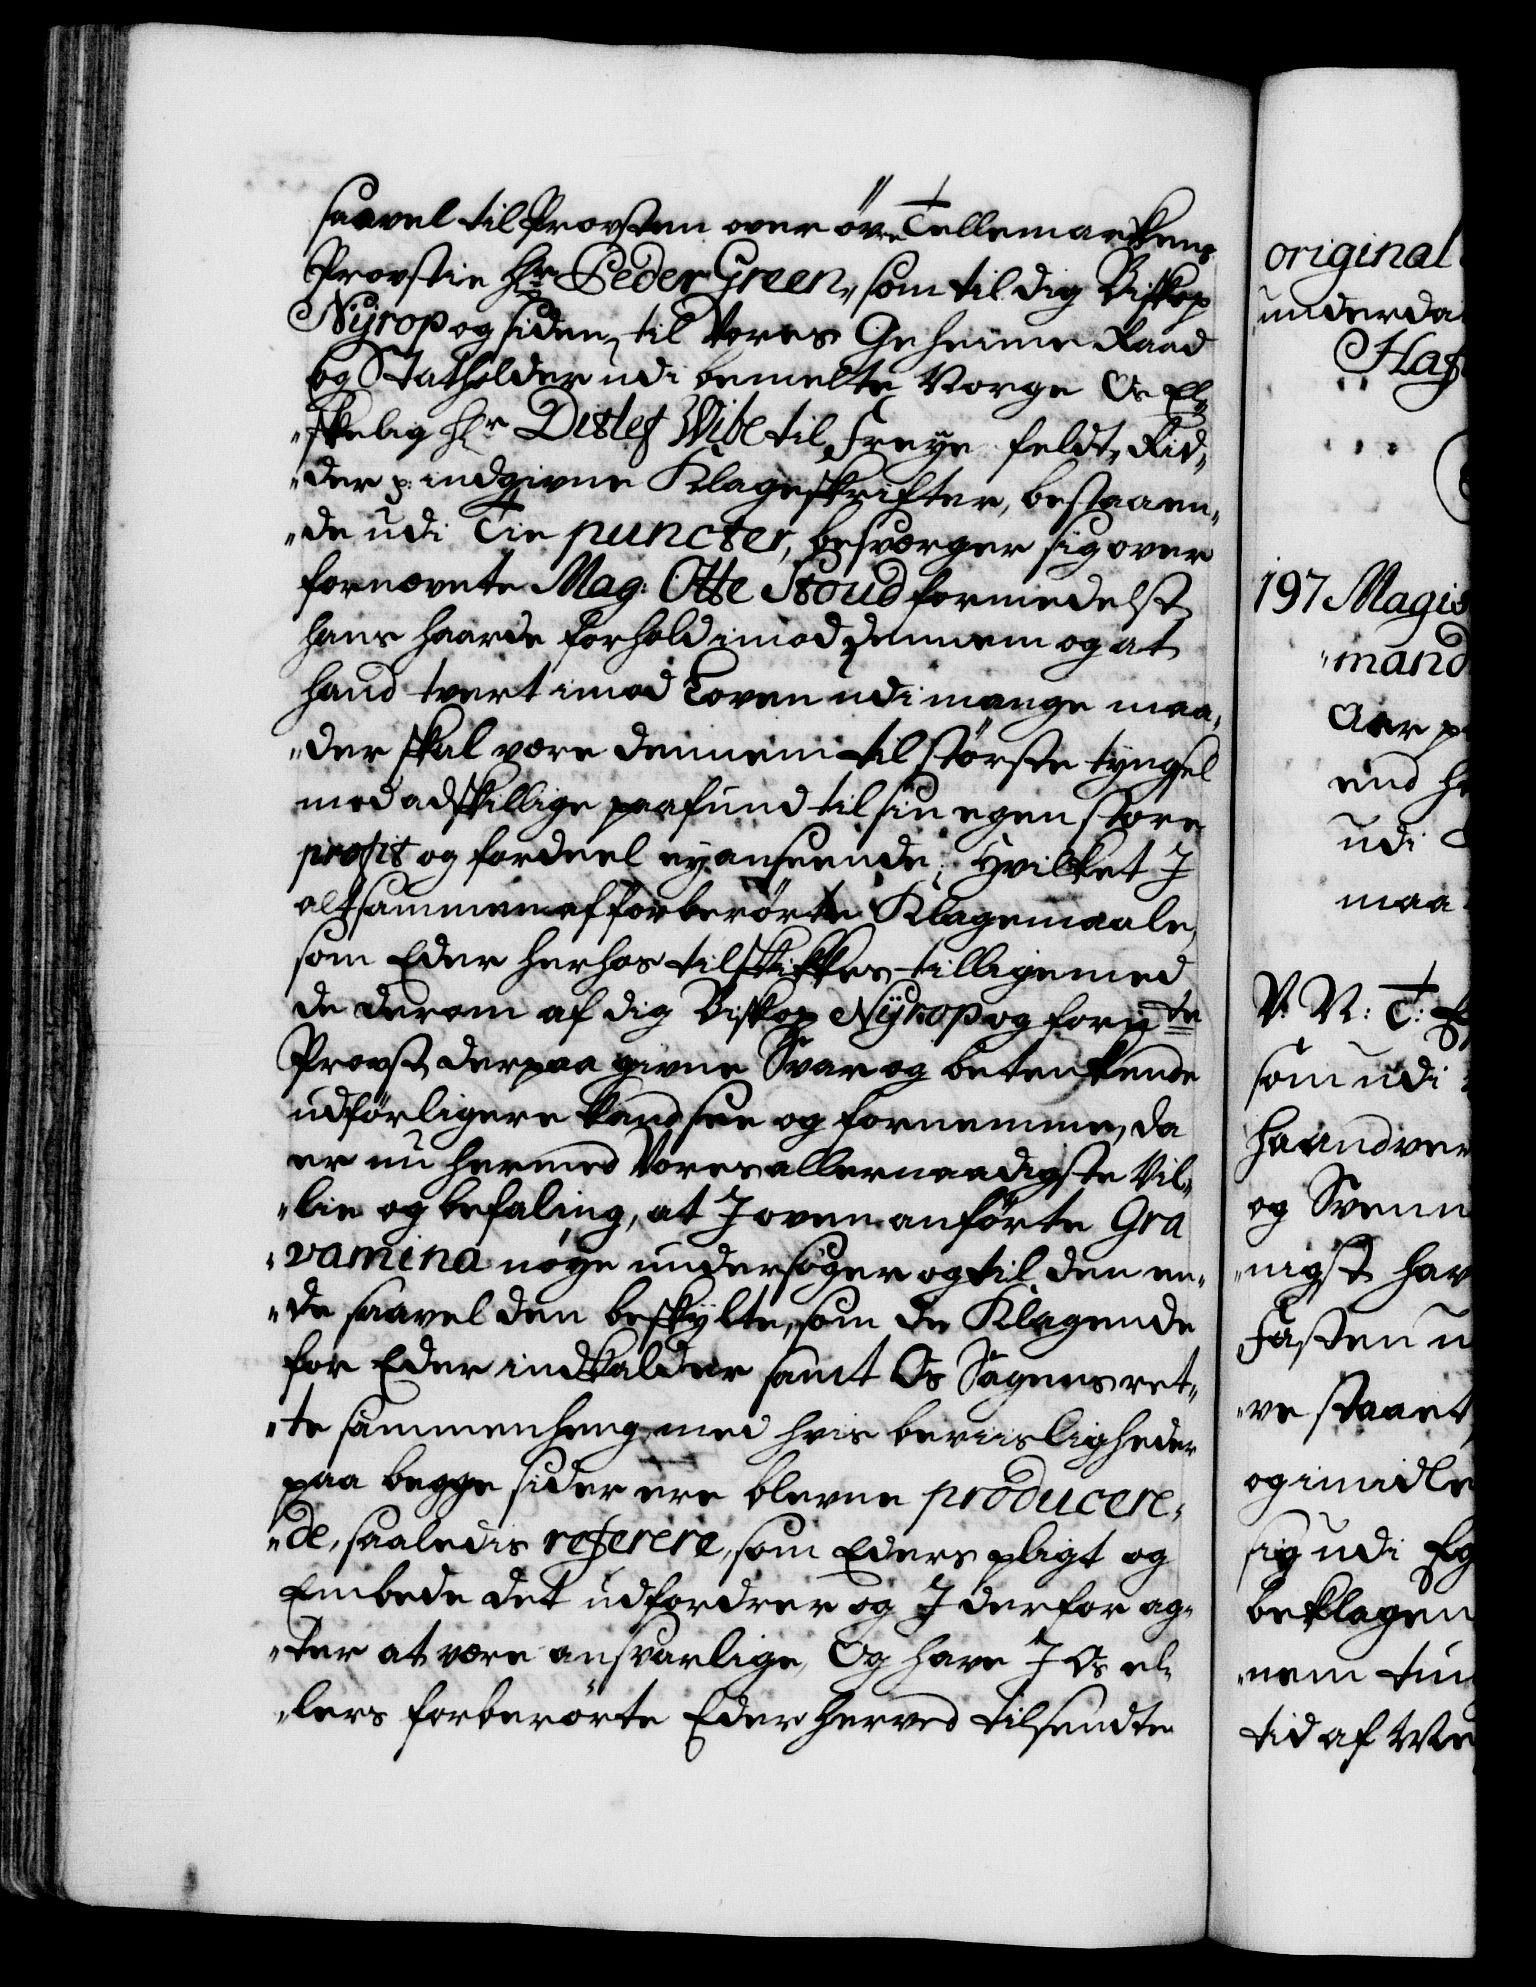 saavel til Provsten over øvre Tellemarkens
Provstie Hr: Peder Green, som til dig Biskop
Nyrop og siden til Vores Geheime Raad
og Statholder udi bemelte Norge Os El„
„skelig Hr Ditlef Wibe til Freye feldt, Rid„
„der p: indgivne Klageskrifter, bestaaen„
„de udi Tie puncter, besværger sig over
fornævnte Mag: Otte Stoud formedelst
hans haarde forhold imod dennem og at
hand tvert imod Loven udi mange maa„
„der skal være dennem til største tyngsel
med adskillige paafund til sin egen store
profit og fordeel eyanseende; Hvilket I
altsammen af forberørte Klagemaale,
som Eder herhos tilskikkes tilligemed
de derom af dig Biskop Nyrop og forn te
Provst derpaa givne Svar og betenkende
udførligere kand see og fornemme, da
er nu hermed Vores allernaadigste Vil„
„lie og befaling, at I ovenanførte Gra
„vamina nøye undersøger og til den en„
„de saavel den beskylte, som de Klagende
for Eder indkalder samt Os Sagens ret„
„te sammenheng med hvis beviisligheder
paa begge sider ere blevne producere„
„de, saaledis referere, som Eders pligt og
Embede det udfordrer og I derfor ag„
„ter at være ansvarlige, Og have I Os el„
„lers forberørte Eder herved tilsendte
original
underda
Haf
197 Magis
„mand
Aar p
end he
udi
maa
V. N: T: E
som udi
haandver
og Svenn
„nigst hav
Fasten u
„ve staaet
og imidle
sig udi Eg
beklagen
„nem tin
tid af We